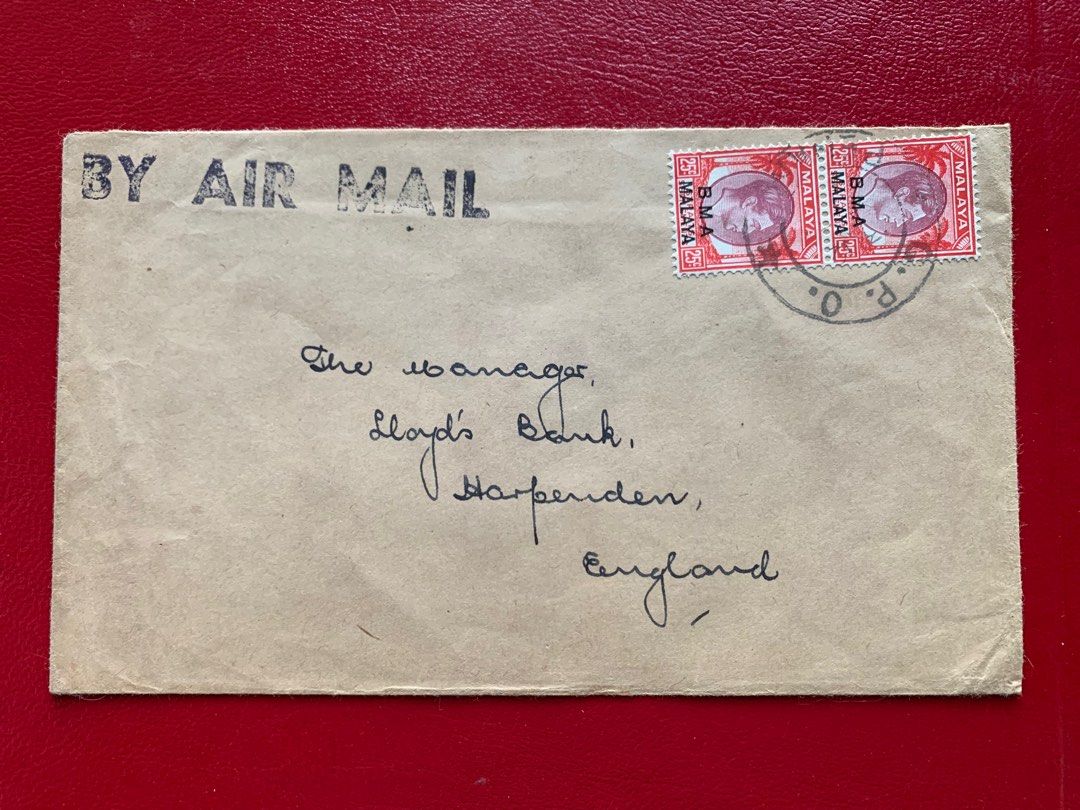 BY AIR MAIL
MALAYA
25C
BMA
MALAYA
25C
MALAYA
25C
BMA
MALAYA
25C
G.P.O.
The Manager,
Lloyd's Bank,
Harpenden,
England